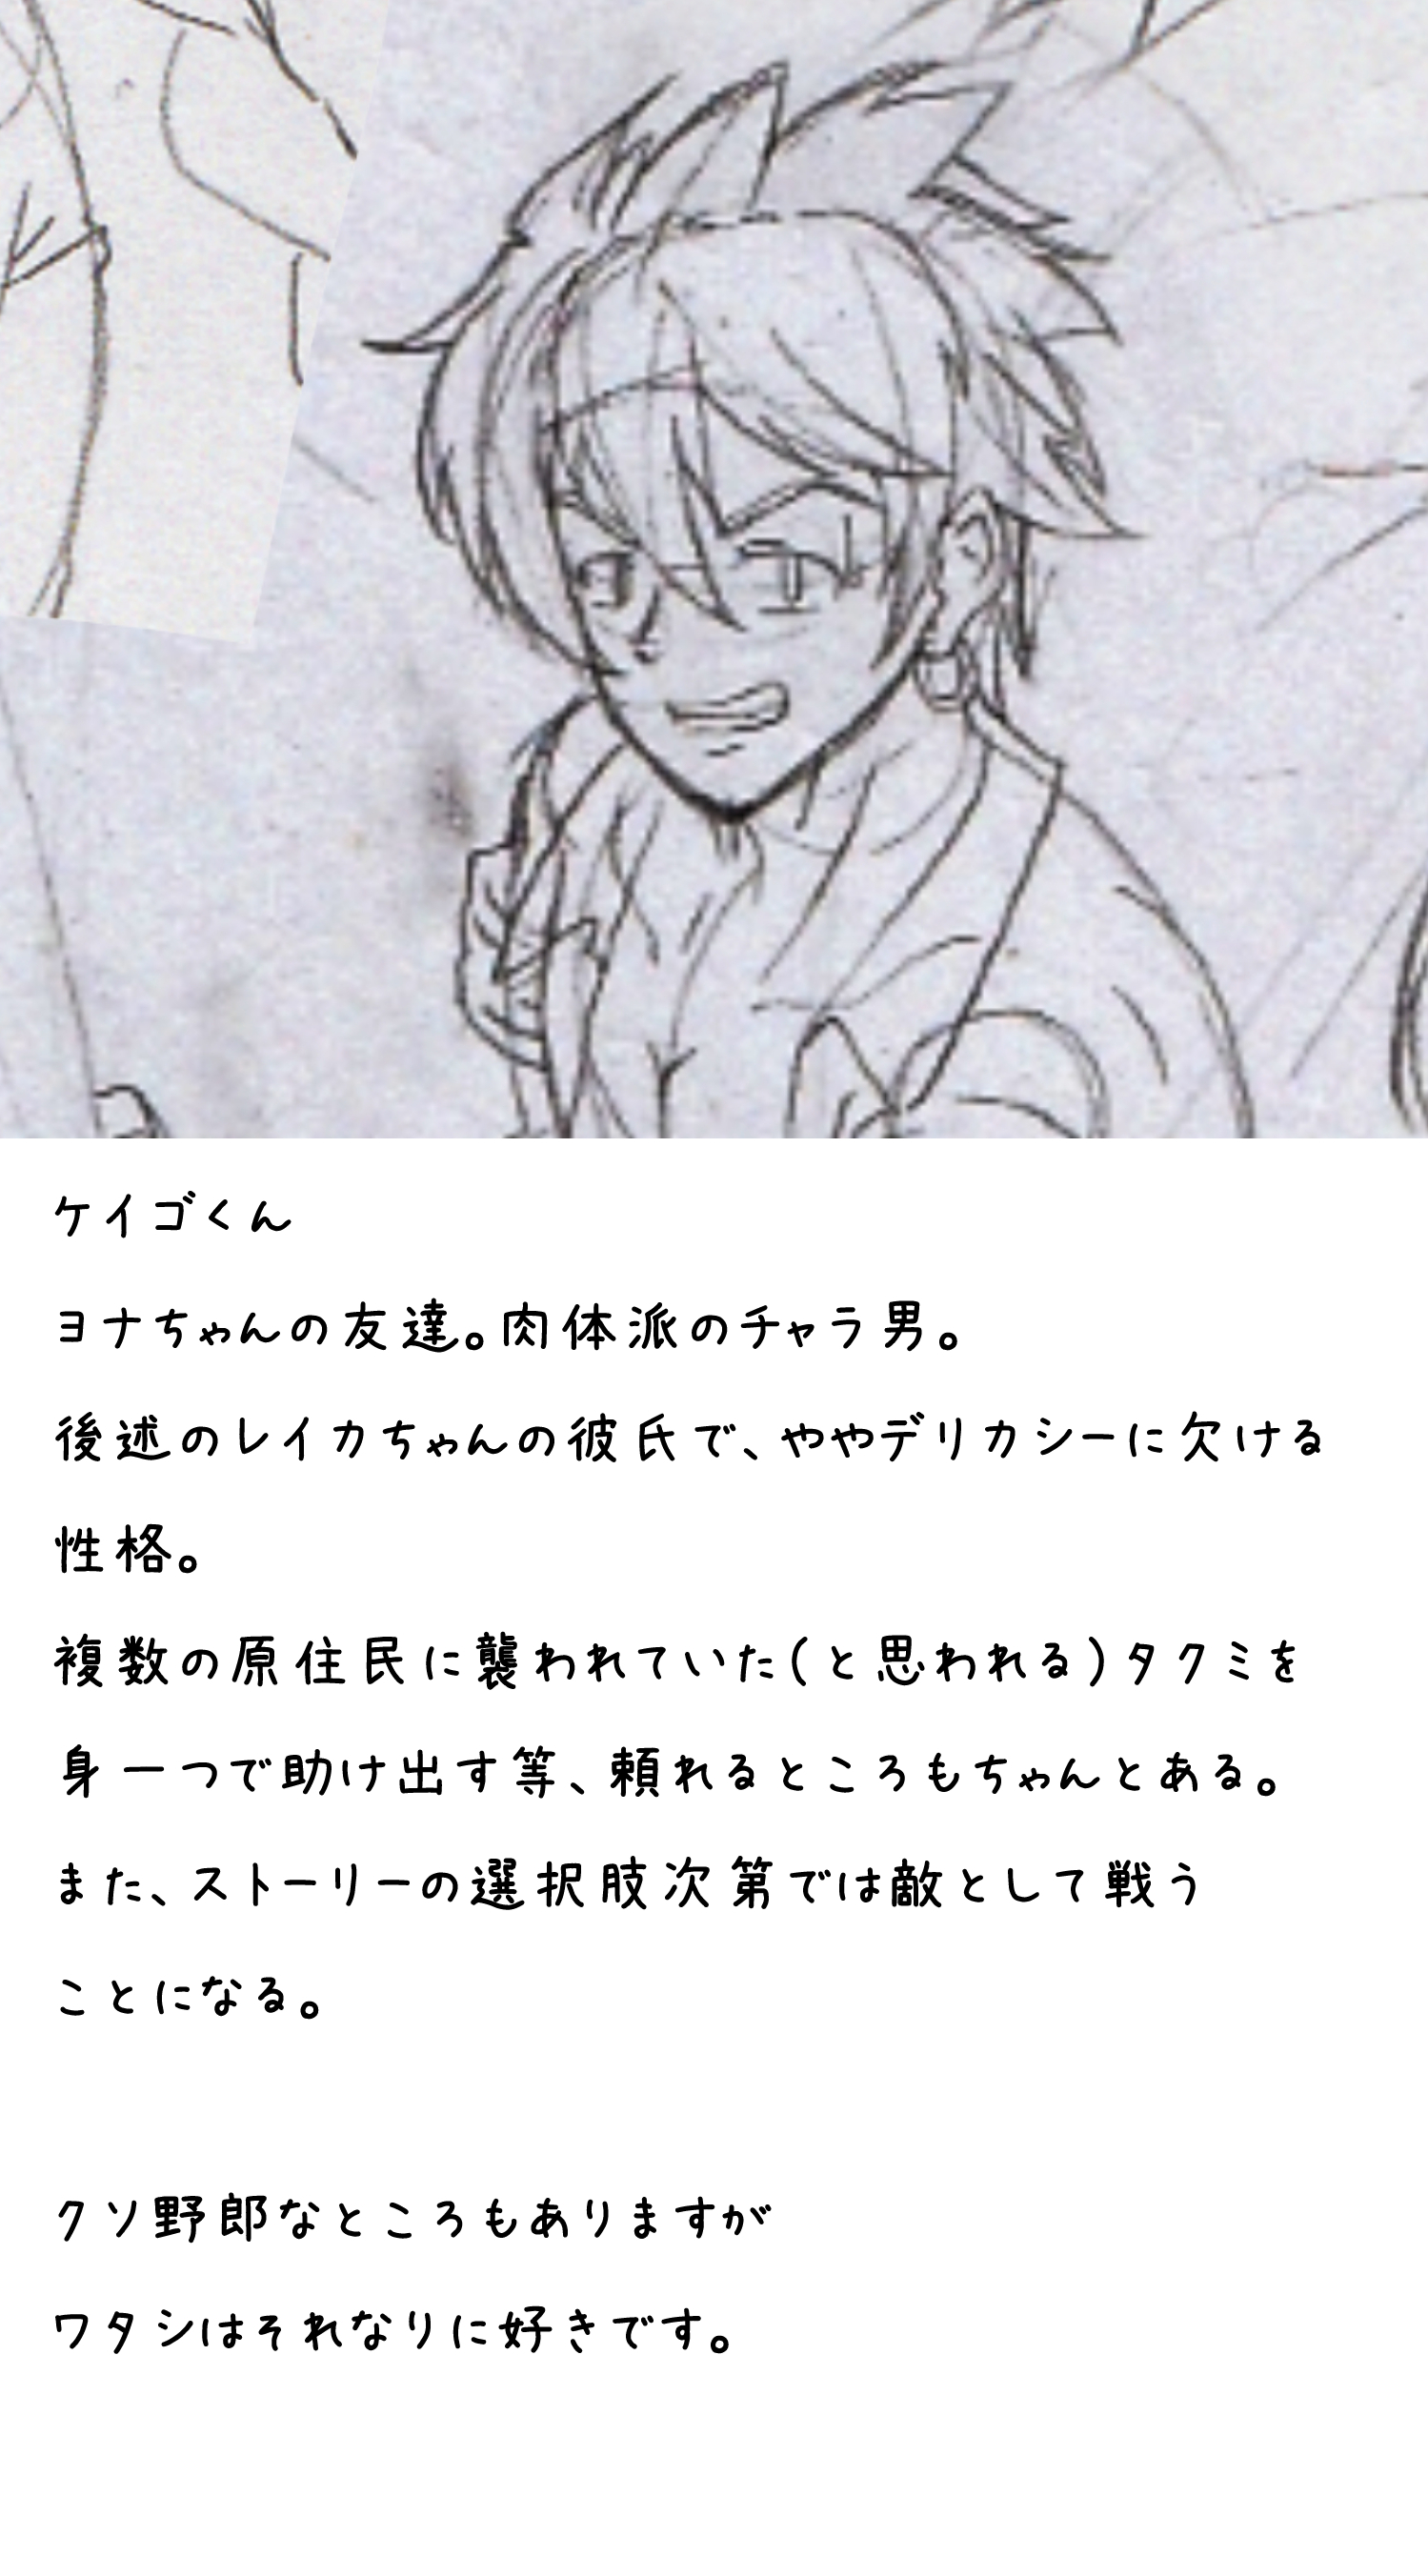 ケイゴくん
ヨナちゃんの友達。肉体派のチャラ男。
後述のレイカちゃんの彼氏で、ややデリカシーに欠ける
性格。
複数の原住民に襲われていた(と思われる)タクミを
身一つで助け出す等、頼れるところもちゃんとある。
また、ストーリーの選択肢次第では敵として戦う
ことになる。
クソ野郎なところもありますが
ワタシはそれなりに好きです。